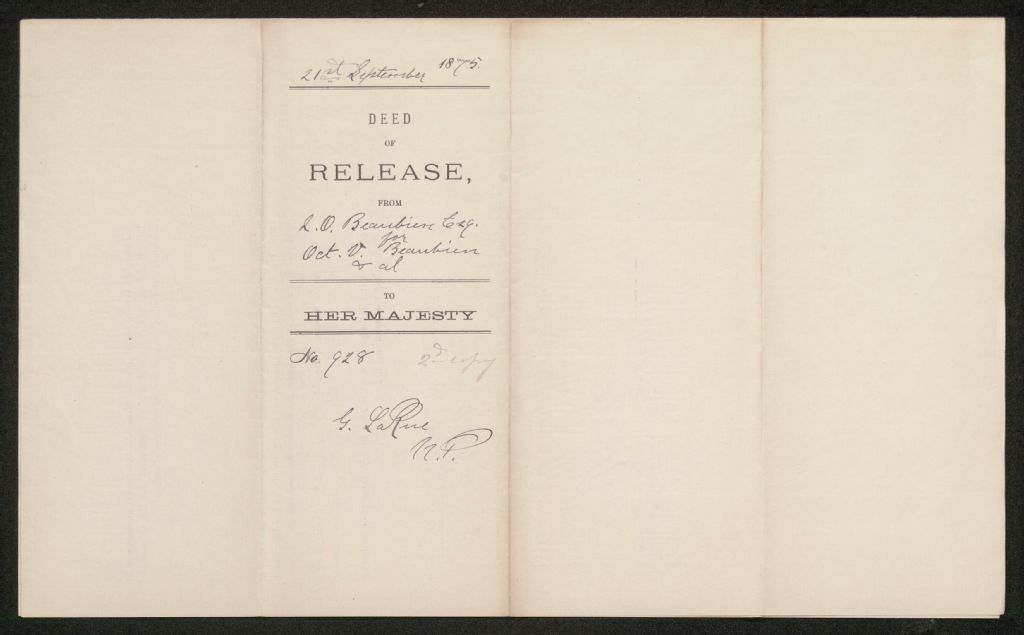 21st September 1875.
DEED
OF
RELEASE,
FROM
L. O. Beaubien Esq.
for
Oct. V. Beaubien
& al
TO
HER MAJESTY
No. 928 2d copy
G. LaRue
N.P.